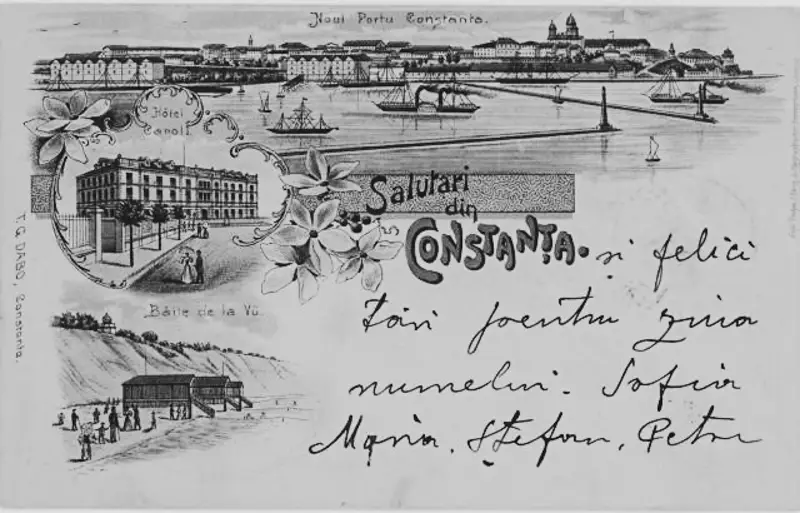 Noul Portu Constanta.
Hôtel
Caroll
Salutari
din
CONSTANȚA. și felici
tări pentru ziua
numelui. Sofia
Maria, Ștefan, Petru
Băile de la Vii.
T. G. DABO, Constanta.